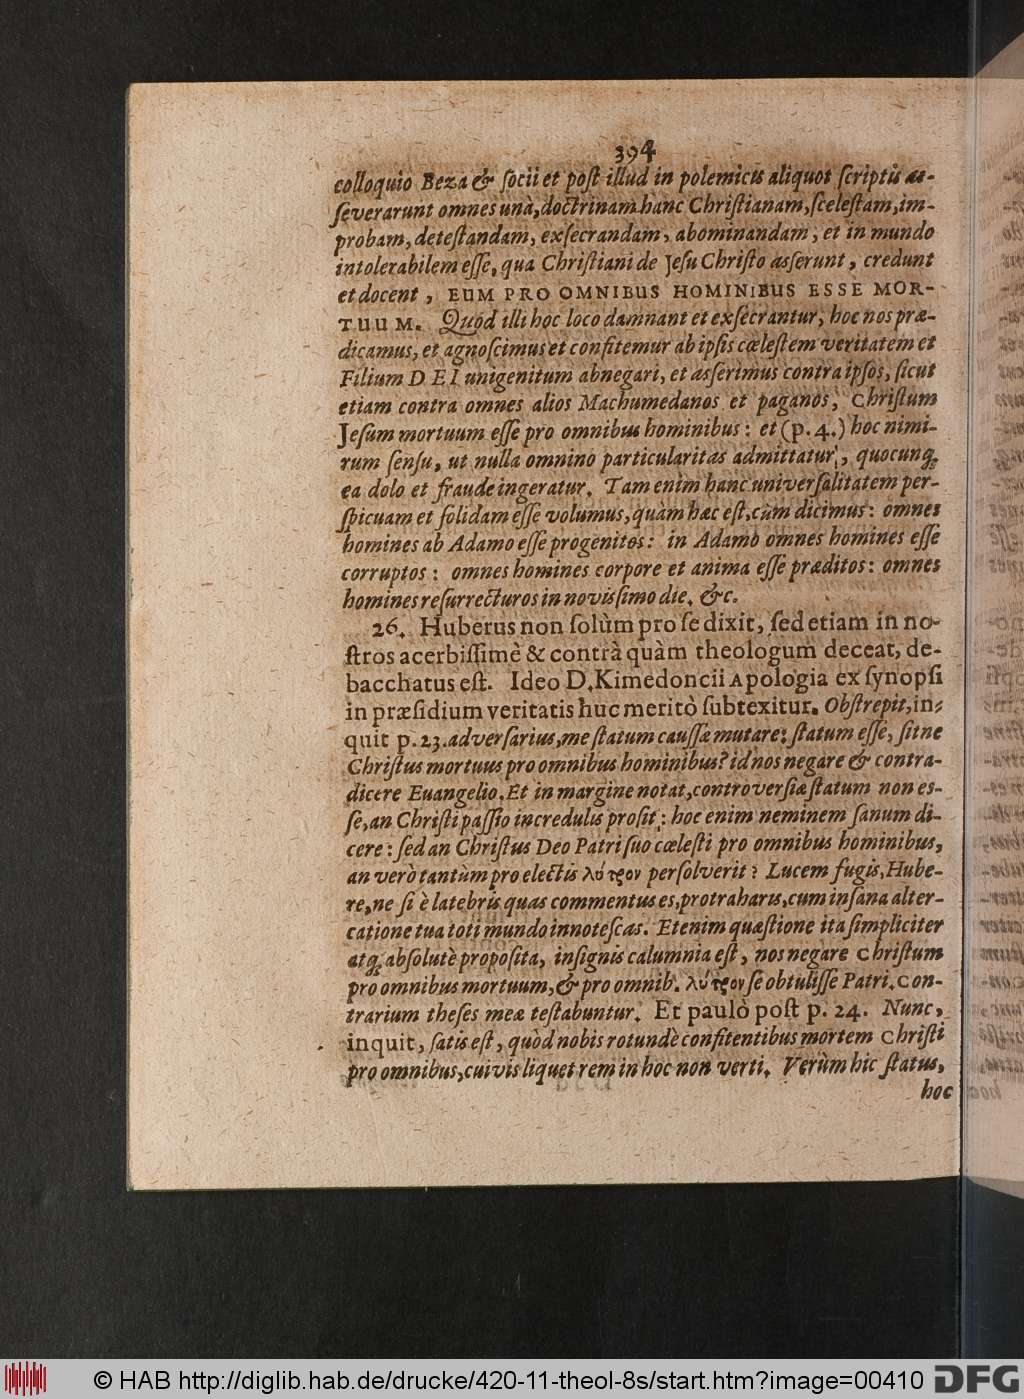 394
colloquio Beza & ſocii et poſt illud in polemicis aliquot ſcriptis as-
ſeverarunt omnes unà, doctrinam hanc Chriſtianam, ſceleſtam, im-
probam, deteſtandam, exſecrandam, abominandam, et in mundo
intolerabilem eſſe, qua Chriſtiani de Jeſu Chriſto asſerunt, credunt
et docent, EUM PRO OMNIBUS HOMINIBUS ESSE MOR-
TUUM. Quod illi hoc loco damnant et exſecrantur, hoc nos præ-
dicamus, et agnoſcimus et confitemur ab ipſis cæleſtem veritatem et
Filium DEI unigenitum abnegari, et asſerimus contra ipſos, ſicut
etiam contra omnes alios Machumedanos et paganos, Chriſtum
Jeſum mortuum eſſe pro omnibus hominibus: et (p. 4.) hoc nimi-
rum ſenſu, ut nulla omnino particularitas admittatur, quocunq;
ea dolo et fraude ingeratur. Tam enim hanc univerſalitatem per-
ſpicuam et ſolidam eſſe volumus, quàm hæc eſt, cùm dicimus: omnes
homines ab Adamo eſſe progenitos: in Adamo omnes homines eſſe
corruptos: omnes homines corpore et anima eſſe præditos: omnes
homines reſurrecturos in novisſimo die. &c.
26. Huberus non ſolùm pro ſe dixit, ſed etiam in no-
ſtros acerbiſſimè & contrà quàm theologum deceat, de-
bacchatus eſt. Ideo D. Kimedoncii Apologia ex ſynopſi
in præſidium veritatis huc meritò ſubtexitur. Obſtrepit, in-
quit p. 23. adverſarius, me ſtatum cauſſæ mutare: ſtatum eſſe, ſitne
Chriſtus mortuus pro omnibus hominibus? id nos negare & contra-
dicere Euangelio. Et in margine notat, controverſiæ ſtatum non es-
ſe, an Chriſti paſſio incredulis proſit: hoc enim neminem ſanum di-
cere: ſed an Chriſtus Deo Patri ſuo cæleſti pro omnibus hominibus,
an verò tantùm pro electis λύτρον perſolverit? Lucem fugis, Hube-
re, ne ſi è latebris quas commentus es, protraharis, cum inſana alter-
catione tua toti mundo innoteſcas. Etenim quæſtione ita ſimpliciter
atq; abſolutè propoſita, inſignis calumnia eſt, nos negare Chriſtum
pro omnibus mortuum, & pro omnib. λύτρον ſe obtuliſſe Patri. Con-
trarium theſes meæ teſtabuntur. Et paulò poſt p. 24. Nunc,
inquit, ſatis eſt, quòd nobis rotundè confitentibus mortem Chriſti
pro omnibus, cuivis liquet rem in hoc non verti. Verùm hic ſtatus,
hoc
© HAB http://diglib.hab.de/drucke/420-11-theol-8s/start.htm?image=00410
DFG